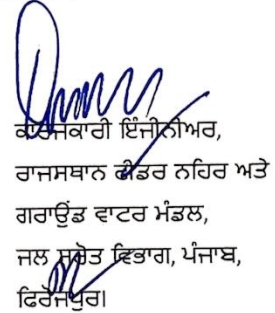 ਕਾਰਜਕਾਰੀ ਇੰਜੀਨੀਅਰ,
ਰਾਜਸਥਾਨ ਫੀਡਰ ਨਹਿਰ ਅਤੇ
ਗਰਾਊਂਡ ਵਾਟਰ ਮੰਡਲ,
ਜਲ ਸਰੋਤ ਵਿਭਾਗ, ਪੰਜਾਬ,
ਫਿਰੋਜਪੁਰ।